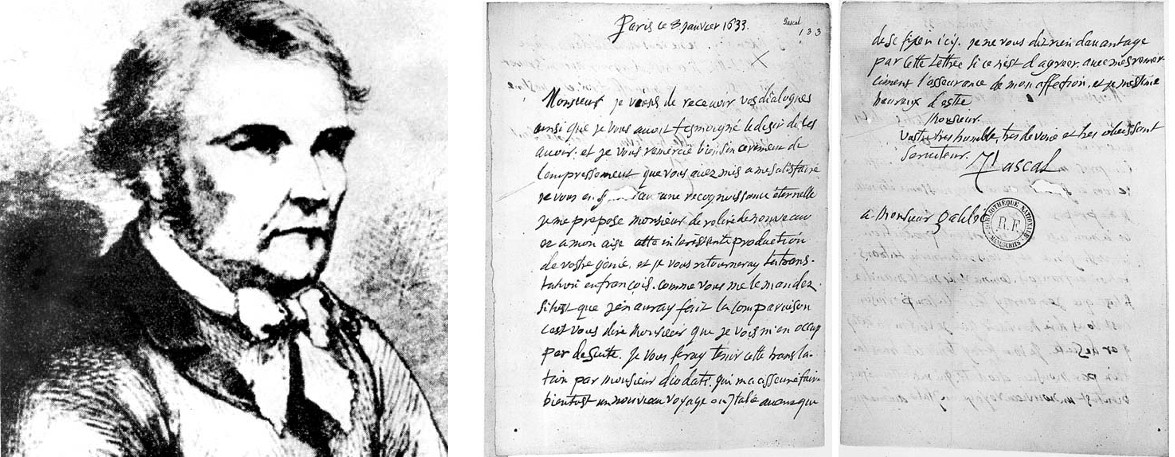 Paris le 8 Janvier 1633.
Pascal
133
Monsieur je viens de recevoir vos dialogues
ainsi que je vous avoit tesmoigné le desir de les
avoir. et je vous remercie bien sincerement de
l'empressement que vous avez mis a me satisfaire
je vous en une recognoissance éternelle
je me propose monsieur de relire de nouveau
et a mon aise cette interessante production
de vostre génie, et je vous retourneray la trans-
lation en francois. comme vous me le mandez.
sitost que j'en auray fait la comparaison
c'est vous dire Monsieur que je vais m'en occup
per de suite. Je vous feray tenir cette transla-
tion par monsieur diodati, qui m'a asseuré faire
bientost un nouveau voyage en Italie avant que
de se fixer icy. je ne vous diz rien davantage
par cette lettre si ce n'est d'agreer avec mes remer-
ciment l'assurance de mon affection. et je m'estime
heureux d'estre
Monsieur
Vostre tres humble, tres devoué et tres obeissant
serviteur. Pascal
a Monsieur galilée
BIBLIOTHEQUE NATIONALE
R.F.